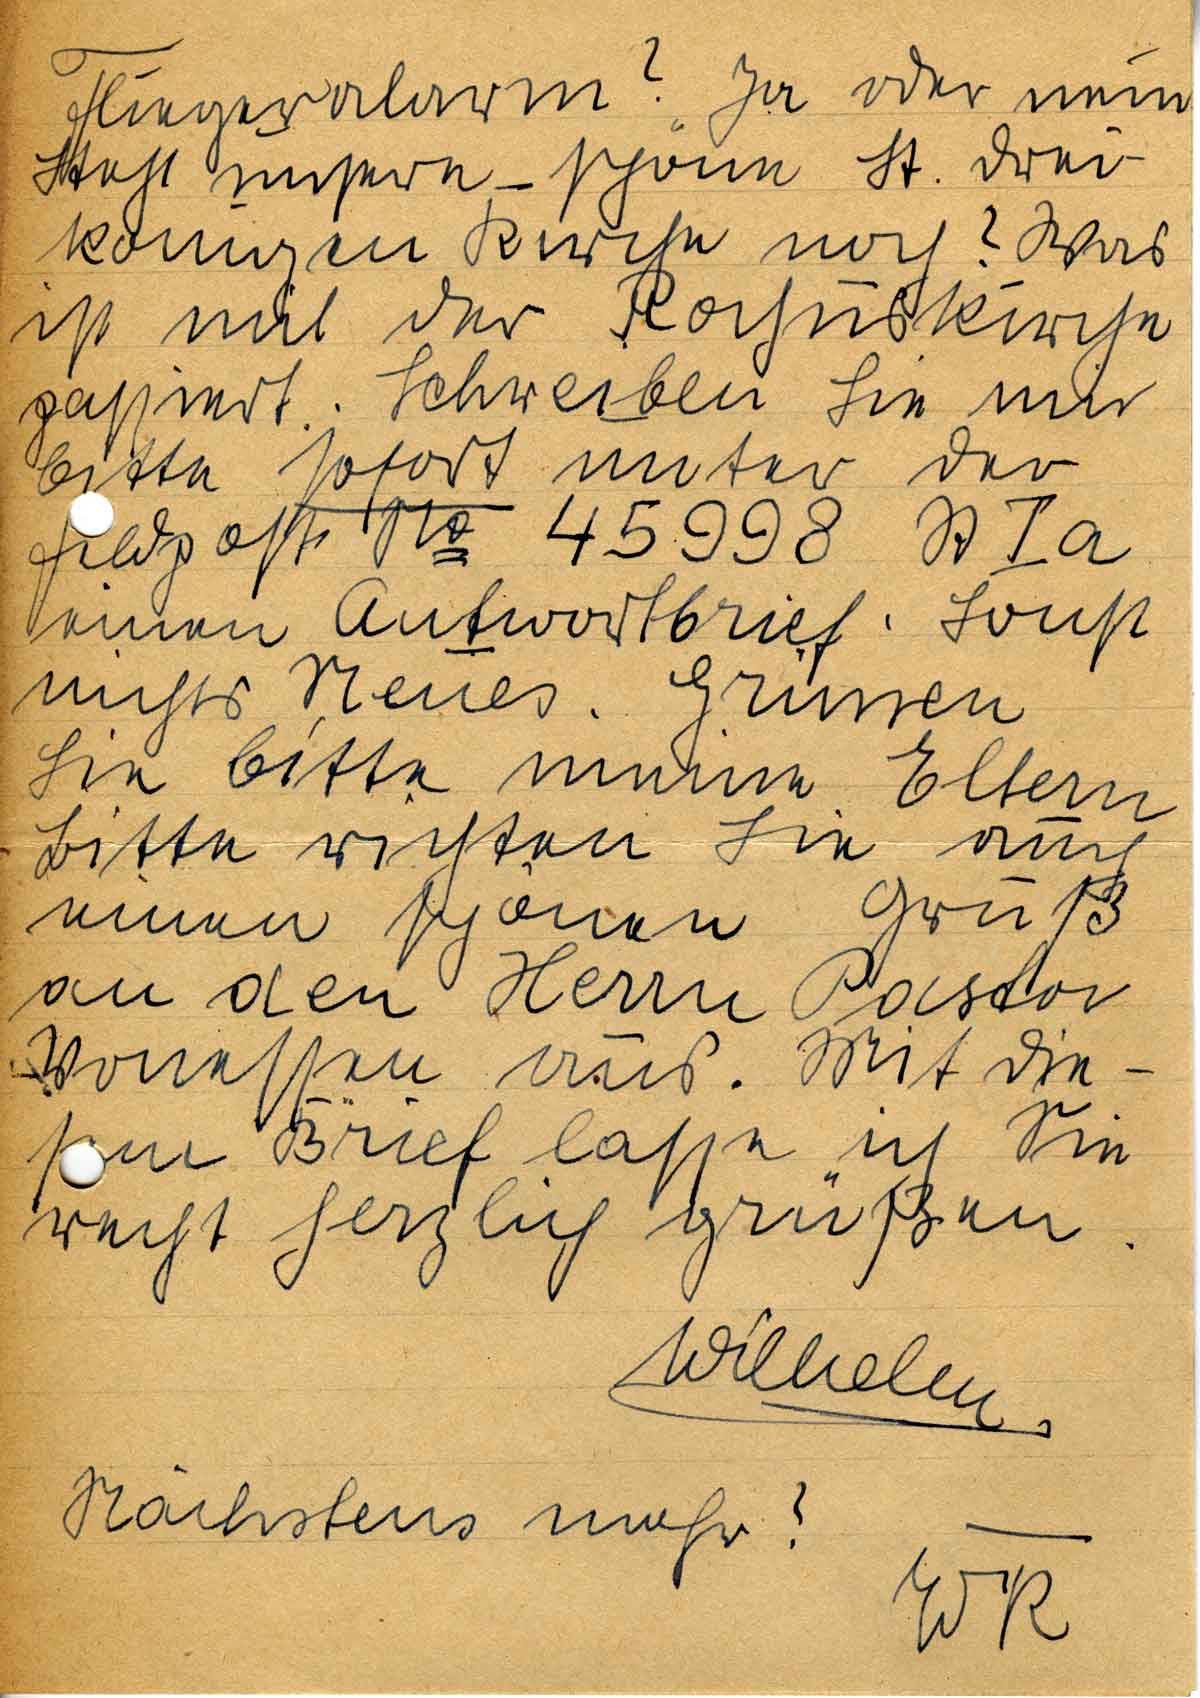 Fliegeralarm? Ja oder nein
steht unsere schöne St. Drei-
königen Kirche noch? Was
ist mit der Rochuskirche
passiert. Schreiben Sie mir
bitte sofort unter der
Feldpost No 45998 A I a
einen Antwortbrief. Sonst
nichts Neues. Grüssen
Sie bitte meine Eltern
Bitte richten Sie auch
einen schönen Gruß
an den Herrn Pastor
Vonessen aus. Mit die-
sem Brief lasse ich Sie
recht herzlich grüßen.
Wilhelm.
Nächstens mehr?
WK